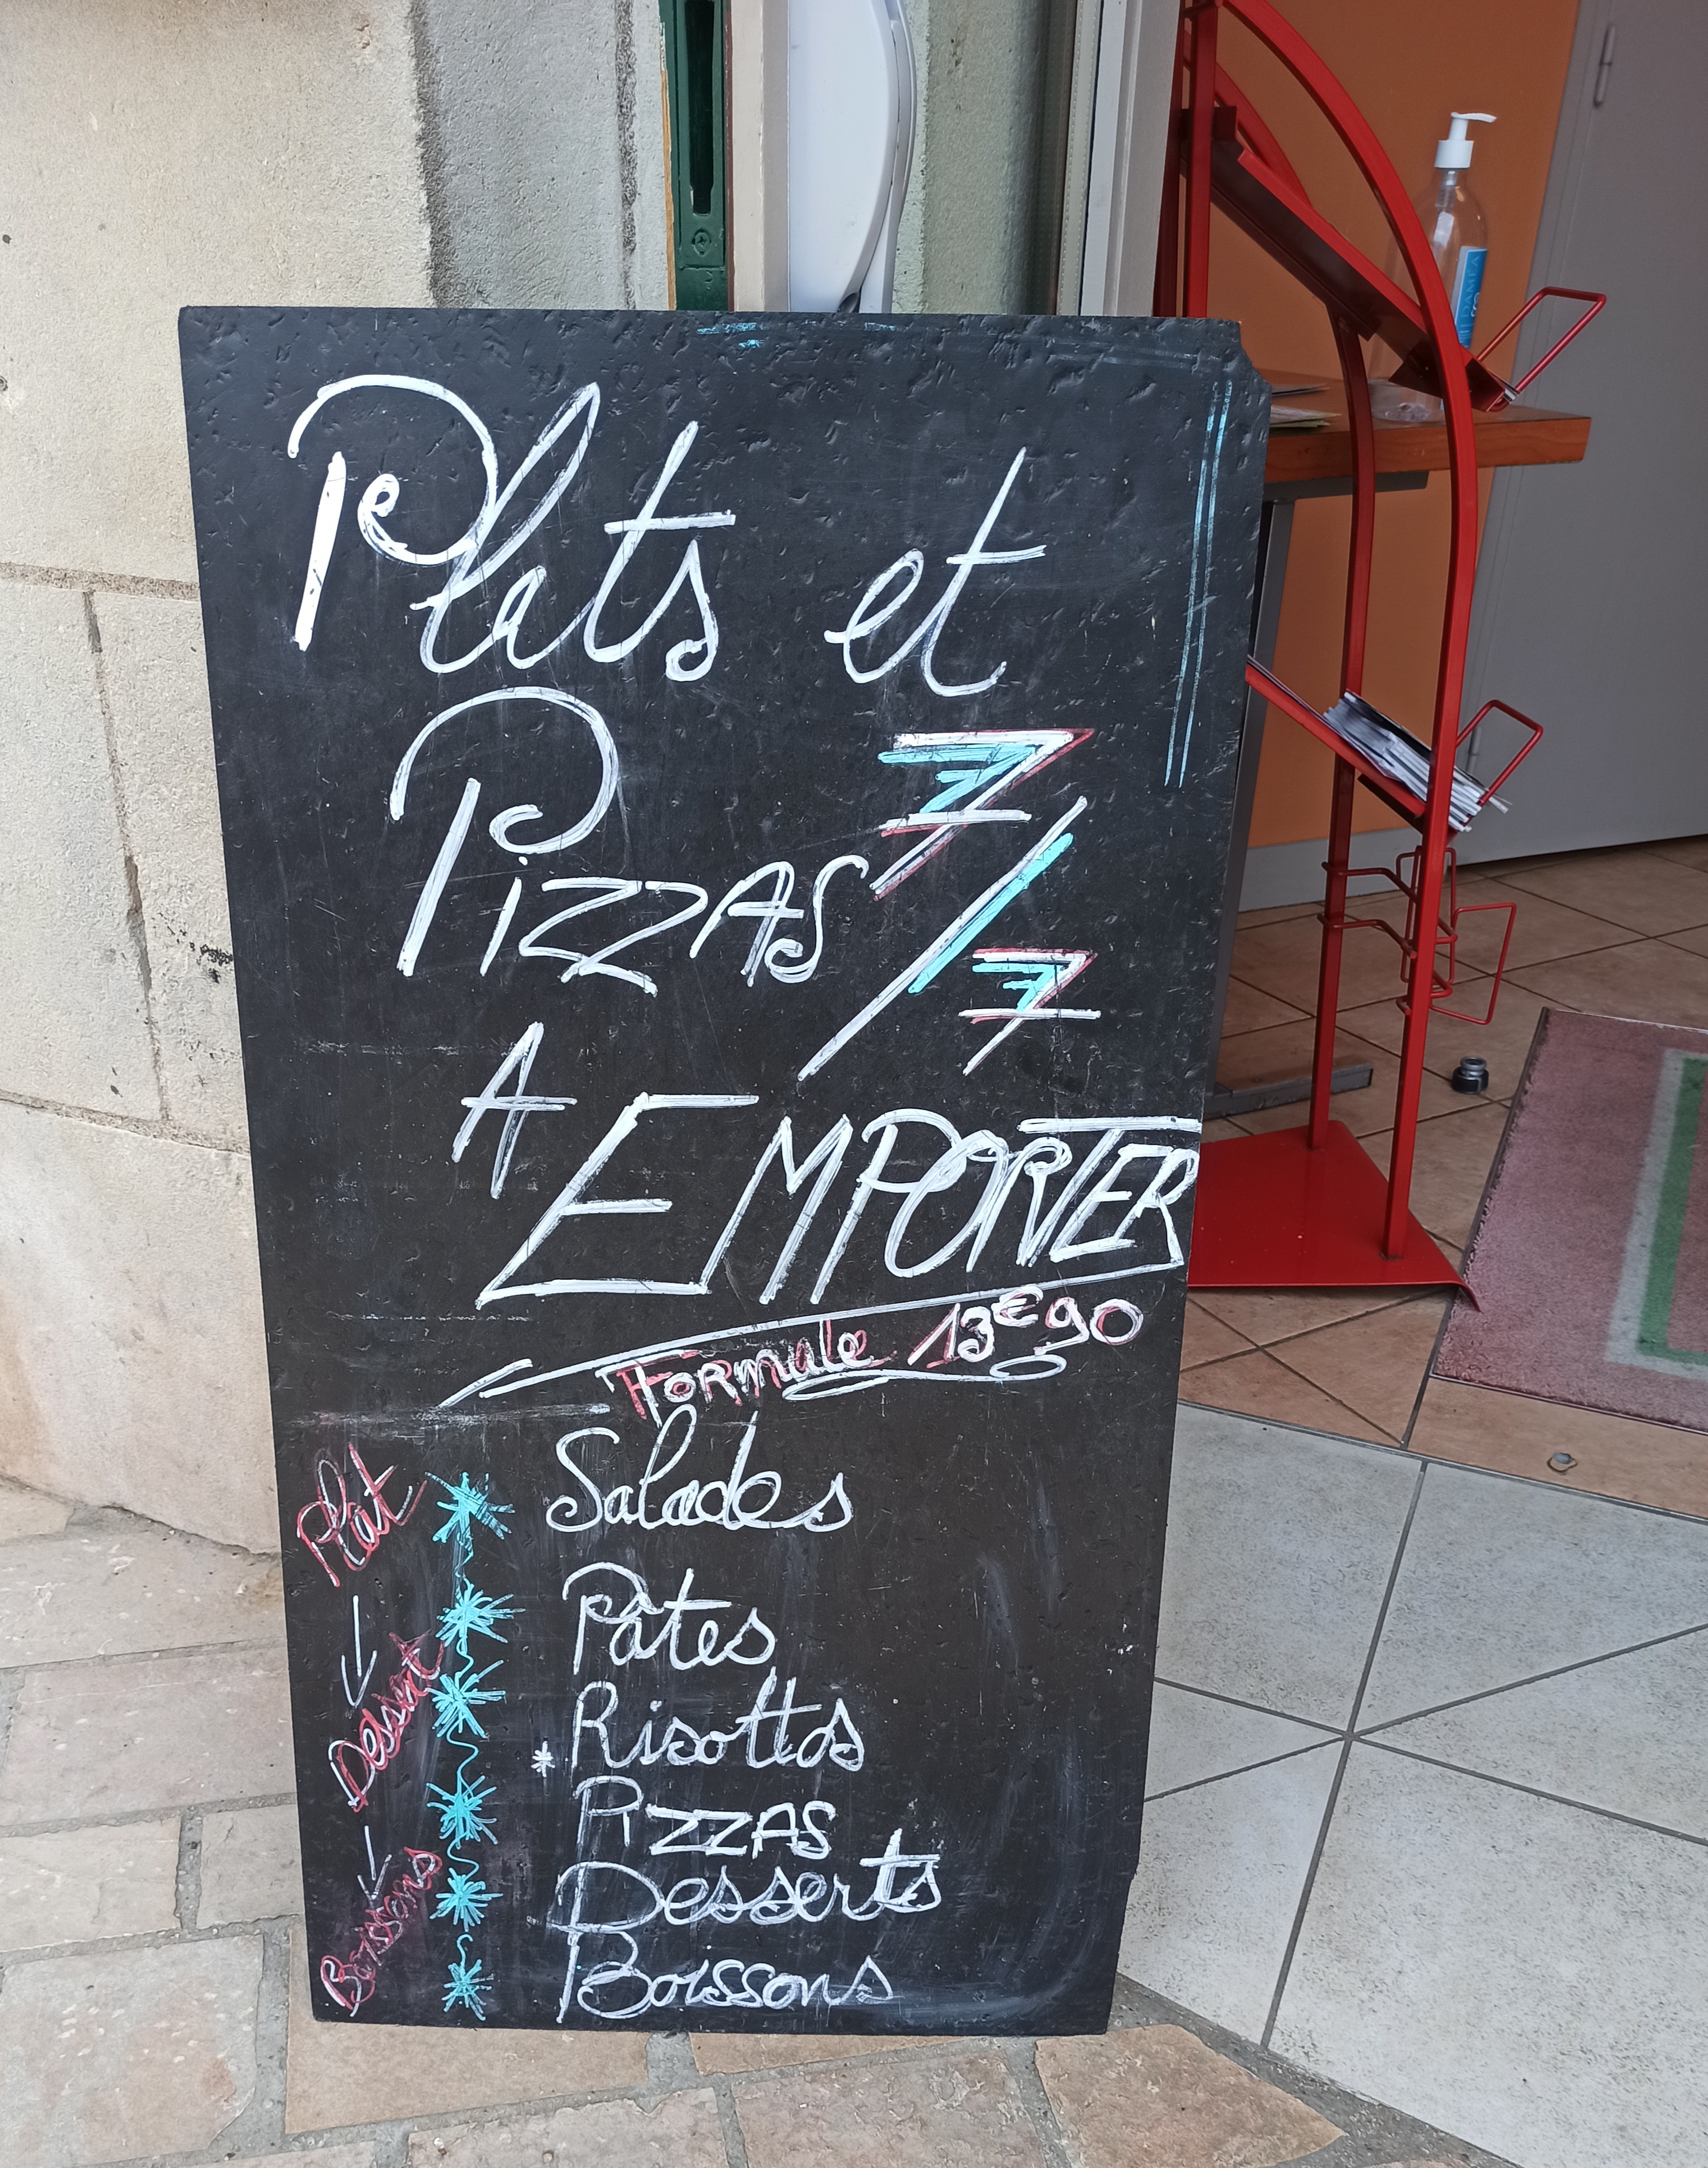 Plats et
Pizzas 7/7
A EMPORTER
Formule 13€90
Salades
Pâtes
Risottos
* Pizzas
Desserts
Boissons
Plat
Dessert
Boissons